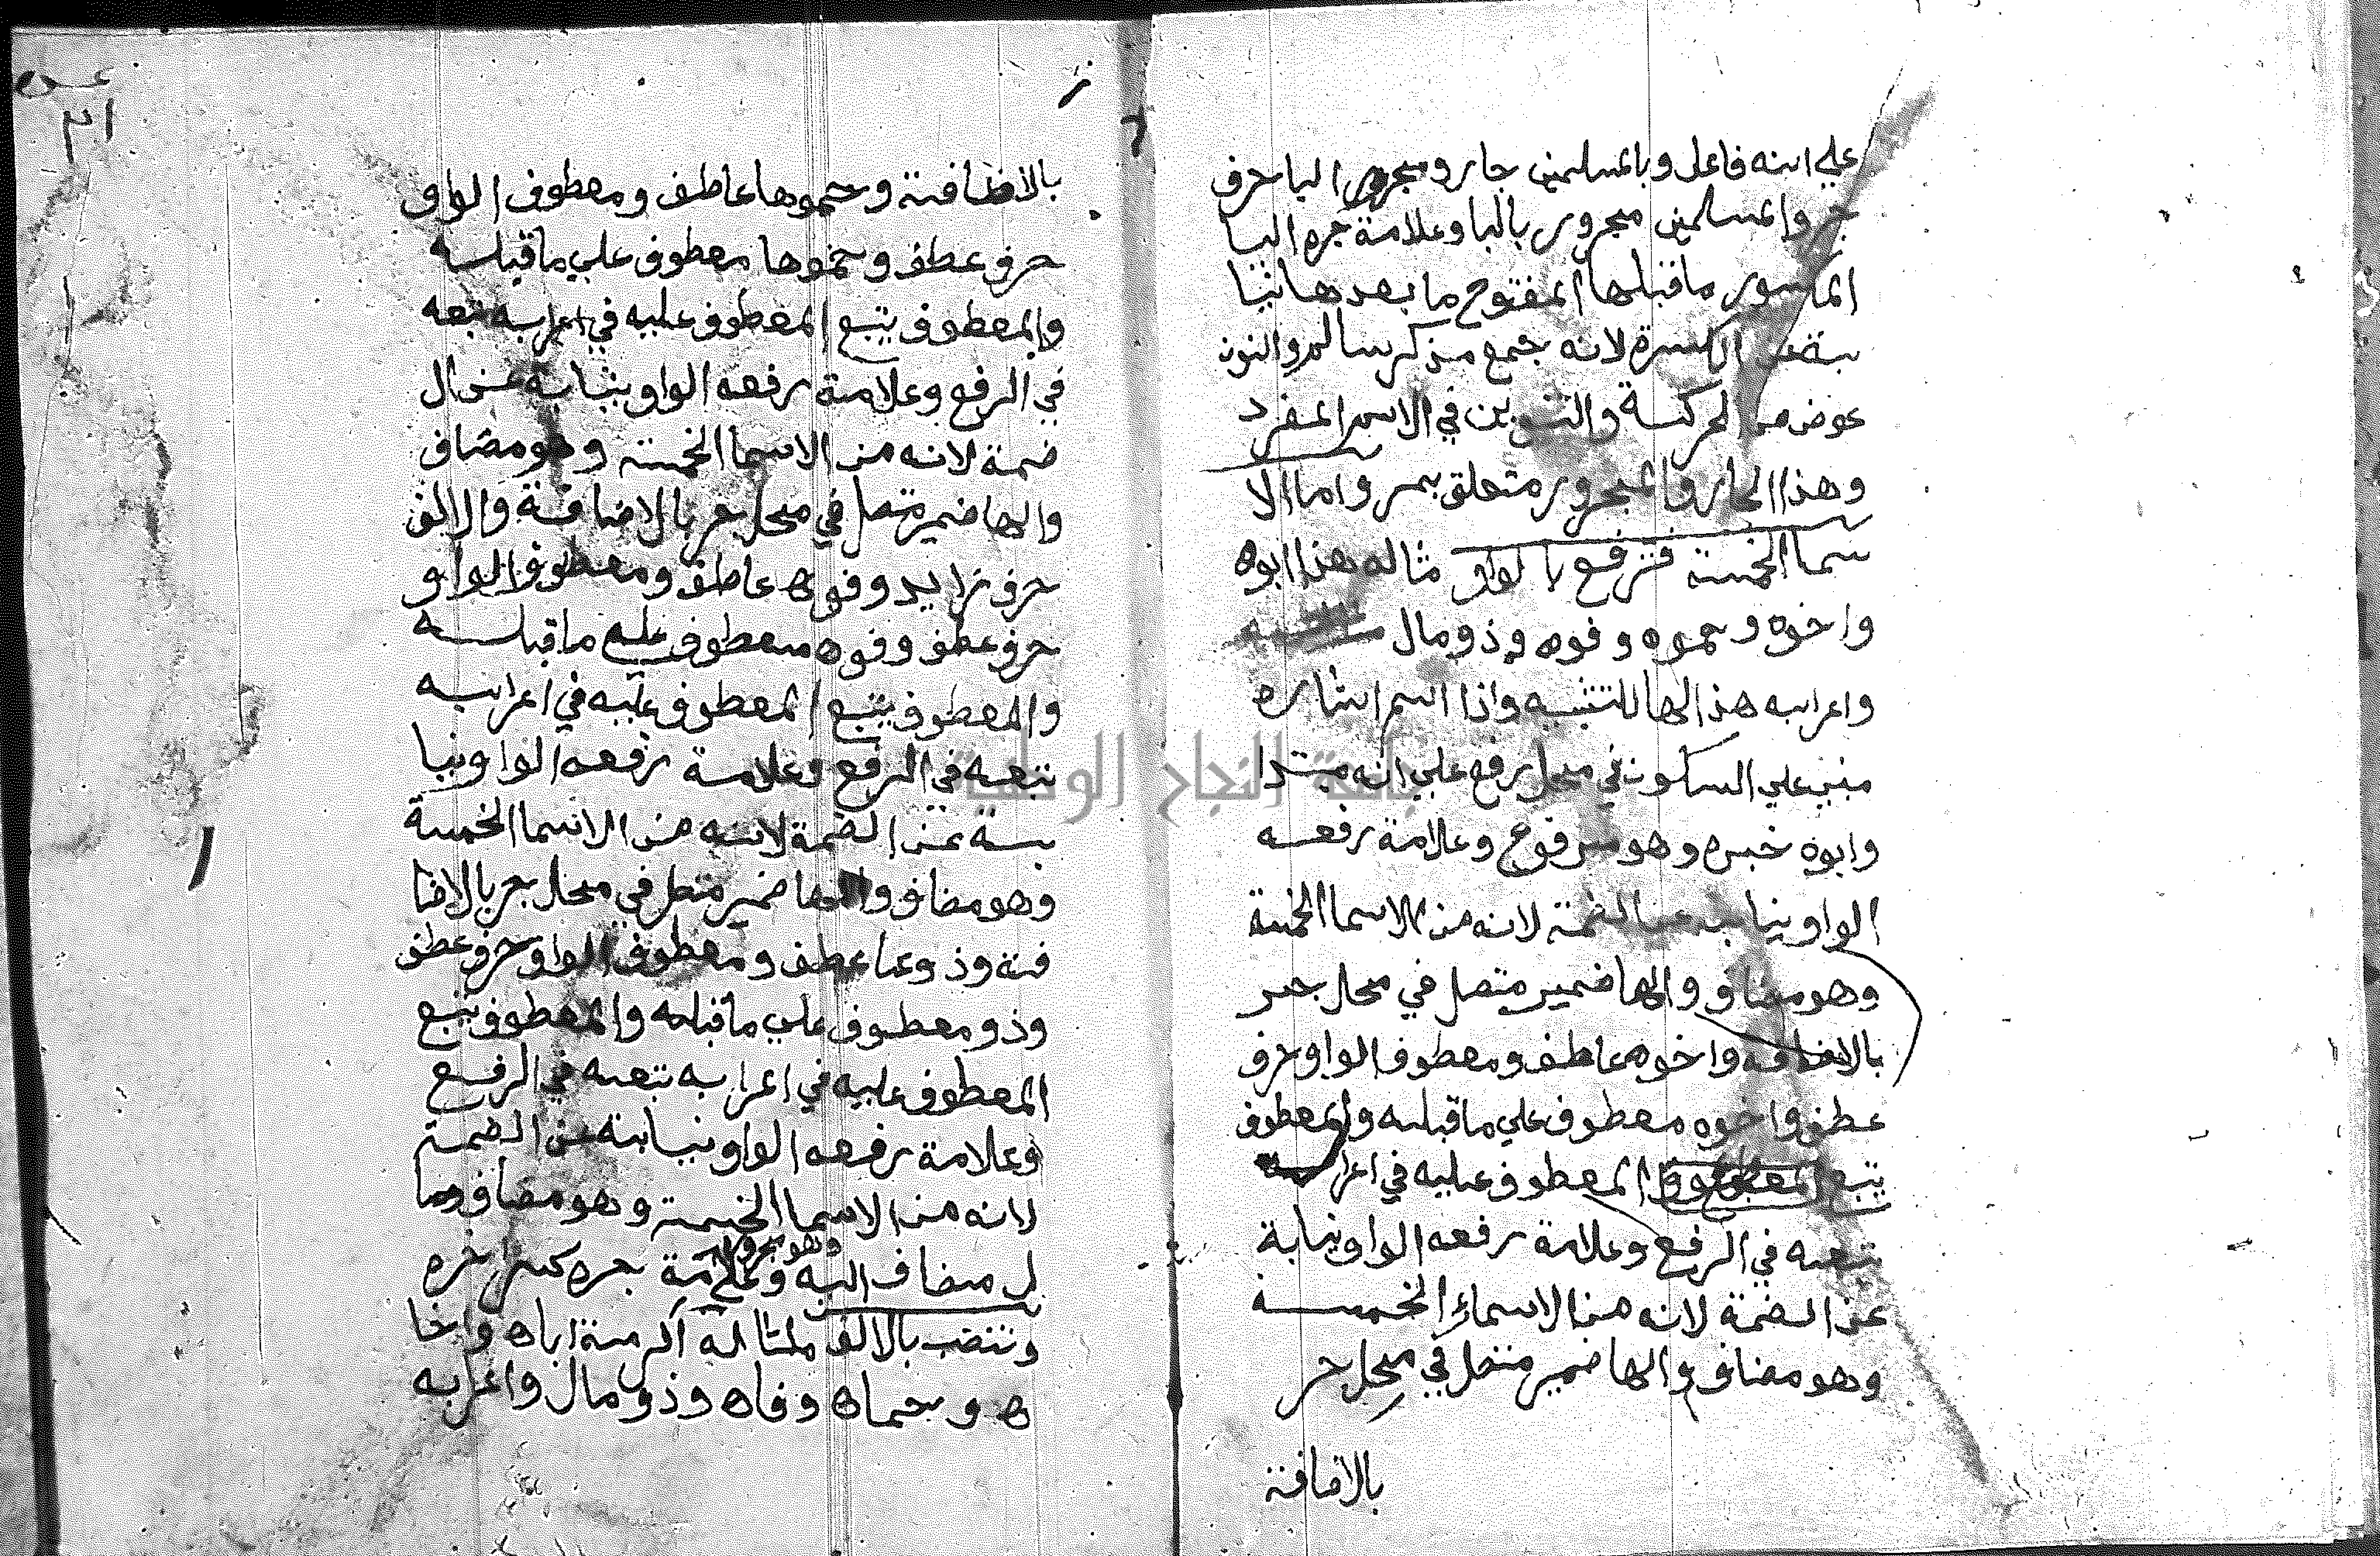 علي انه فاعل وبالمسلمين جار ومجرور اليا حرف
جر والمسلمين مجرور بالبا وعلامة جره اليا
المكسور ما قبلها المفتوح ما بعدها نيا
بة عن الكسرة لانه جمع مذكر سالم والنون
عوض من الحركة والتنوين في الاسم المفرد
وهذا الجار والمجرور متعلق بمر واما الا
سما الخمسة فترفع بالواو مثاله هذا ابوه
واخوه وحموه وفوه وذو مال
واعرابه هذا الها للتنبيه واذا اسم اشاره
مبني علي السكون في محل رفع علي انه مبتدا
وابوه خبره وهو مرفوع وعلامة رفعه
الواو نيابة عن الضمة لانه من الاسما الخمسة
وهو مضاف والها ضمير متصل في محل جر
بالاضافه واخوه عاطف ومعطوف الواو حرف
عطف واخوه معطوف علي ما قبله والمعطوف
يتبع المعطوف المعطوف عليه في اعرابه
تبعه في الرفع وعلامة رفعه الواو نيابة
عن الضمة لانه من الاسماء الخمسة
وهو مضاف والها ضمير متصل في محل جر
بالاضافة
عـه
٣١
بالاضافة وحموها عاطف ومعطوف الواو
حرف عطف وحموها معطوف علي ما قبله
والمعطوف يتبع المعطوف عليه في اعرابه تبعه
في الرفع وعلامة رفعه الواو نيابة عن ال
ضمة لانه من الاسما الخمسة وهو مضاف
والها ضمير متصل في محل جر بالاضافة والالف
حرف زايد وفوه عاطف ومعطوف الواو
حرف عطف وفوه معطوف علي ما قبله
والمعطوف يتبع المعطوف عليه في اعرابه
تبعه في الرفع وعلامة رفعه الواو نيا
بة عن الضمة لانه من الاسما الخمسة
وهو مضاف والها ضمير متصل في محل جر بالاضا
فة وذو عاطف ومعطوف الواو حرف عطف
وذو معطوف علي ما قبله والمعطوف يتبع
المعطوف عليه في اعرابه تبعه في الرفع
وعلامة رفعه الواو نيابة عن الضمة
لانه من الاسما الخمسة وهو مضاف وما
ل مضاف اليه وهو مجرور وعلامة جره كسر اخره
وتنصب بالالف مثاله اكرمت اباه واخا
ه وحماه وفاه وذو مال واعرابه
جامعة النجاح الوطنية